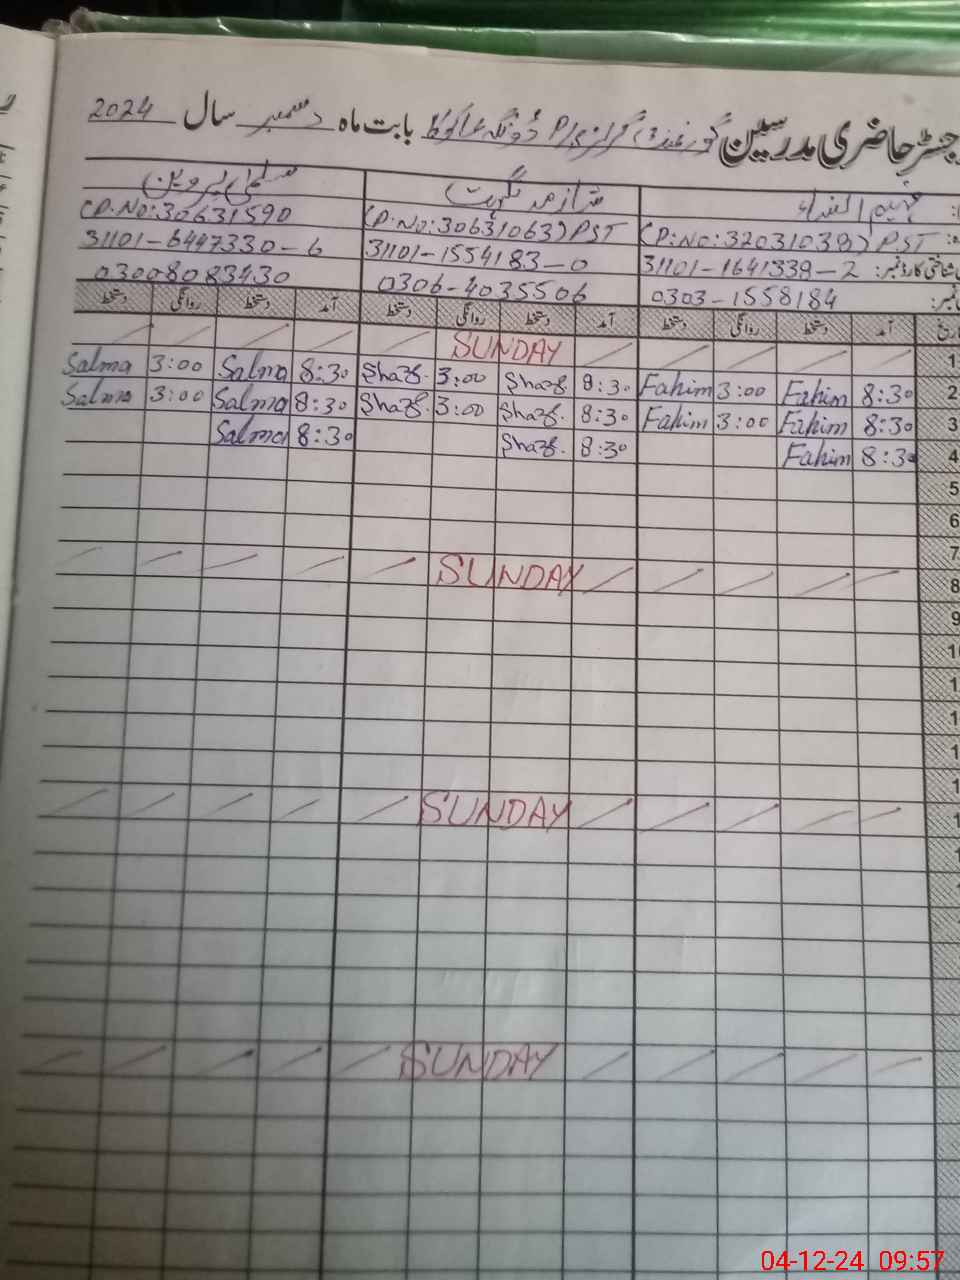 رجسٹر حاضری مدرسین گورنمنٹ گرلز P/S بابت ماہ دسمبر سال 2024
فہیم النساء شازمہ نگہت سلمیٰ پروین
(P.No:32031039) PST (P:No:30631063) PST (P.No:30631590
شناختی کارڈ نمبر: 31101-1641339-2 31101-1554183-0 31101-6447330-6
نمبر: 0303-1558184 0306-4035506 03008083430
تاریخ آمد دستخط روانگی دستخط آمد دستخط روانگی دستخط آمد دستخط روانگی دستخط
1 SUNDAY
2 8:30 Fahim 3:00 Fahim 8:30 Shaz. 3:00 Shaz. 8:30 Salma 3:00 Salma
3 8:30 Fahim 3:00 Fahim 8:30 Shaz. 3:00 Shaz. 8:30 Salma 3:00 Salma
4 8:30 Fahim 8:30 Shaz. 8:30 Salma
5
6
7
8 SUNDAY
9
10
1
1
1
1
1 SUNDAY
SUNDAY
04-12-24 09:57